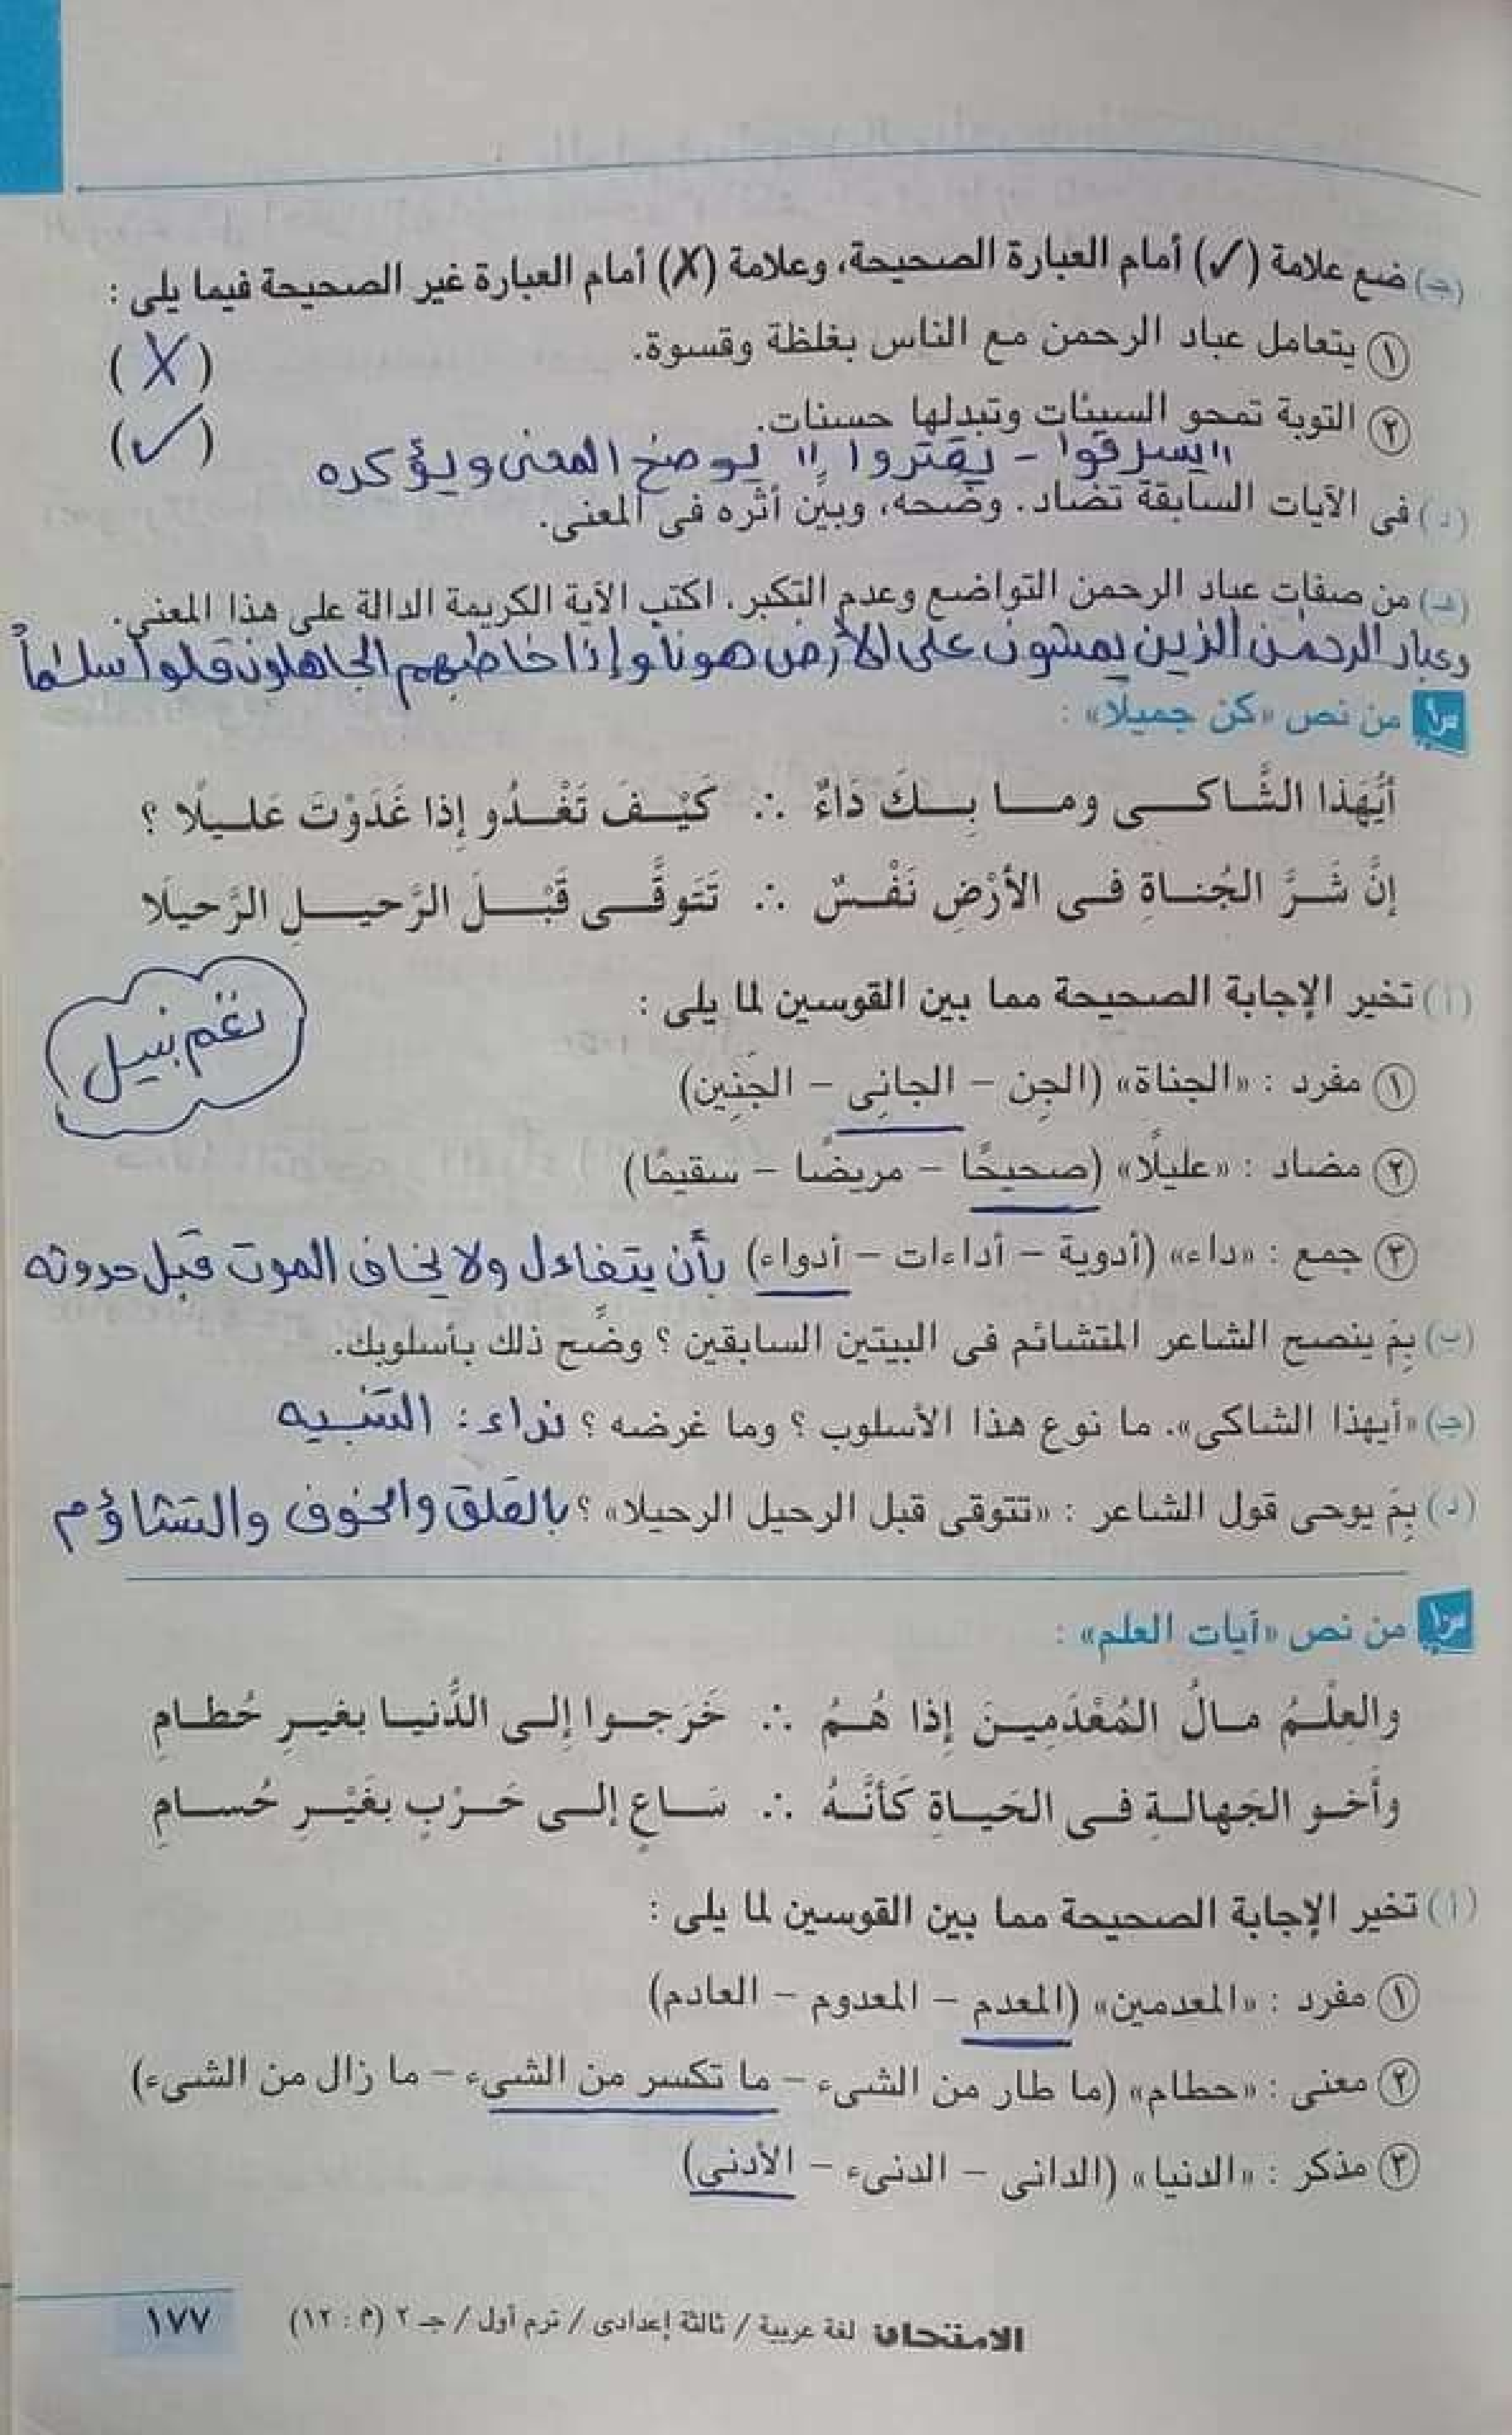 (جـ) ضع علامة (✓) أمام العبارة الصحيحة، وعلامة (X) أمام العبارة غير الصحيحة فيما يلى :
١ يتعامل عباد الرحمن مع الناس بغلظة وقسوة. (X)
٢ التوبة تمحو السيئات وتبدلها حسنات. (✓)
"يسرفوا - يقتروا" يوضح المعنى ويؤكده
(د) فى الآيات السابقة تضاد. وضحه، وبين أثره فى المعنى.
(هـ) من صفات عباد الرحمن التواضع وعدم التكبر. اكتب الآية الكريمة الدالة على هذا المعنى.
وعباد الرحمن الذين يمشون على الأرض هوناً وإذا خاطبهم الجاهلون قالوا سلماً
من نص «كن جميلًا» :
أَيُّهَذا الشَّاكــى ومــا بِــكَ دَاءٌ ∴ كَيْــفَ تَغْــدُو إذا غَدَوْتَ عَليــلًا ؟
إنَّ شَــرَّ الجُنــاةِ فــى الأرْضِ نَفْــسٌ ∴ تَتَوقَّــى قَبْــلَ الرَّحيــلِ الرَّحيلَا
(أ) تخير الإجابة الصحيحة مما بين القوسين لما يلى :
نغم نبيل
١ مفرد : «الجناة» (الجِن – الجانِى – الجَنِين)
٢ مضاد : «عليلًا» (صحيحًا – مريضًا – سقيمًا)
٣ جمع : «داء» (أدوية – أداءات – أدواء) بأن يتفاءل ولا يخاف الموت قبل حدوثه
(ب) بِمَ ينصح الشاعر المتشائم فى البيتين السابقين ؟ وضَّح ذلك بأسلوبك.
(جـ) «أيهذا الشاكى». ما نوع هذا الأسلوب ؟ وما غرضه ؟ نداء : التنبيه
(د) بِمَ يوحى قول الشاعر : «تتوقى قبل الرحيل الرحيلا» ؟ بالقلق والخوف والتشاؤم
س١٠ من نص «آيات العلم» :
والعِلْــمُ مــالُ المُعْدَمِيــنَ إذا هُــمُ ∴ خَرَجــوا إلــى الدُّنيــا بغيــرِ حُطــامِ
وأَخــو الجَهالــةِ فــى الحَيــاةِ كَأنَّــهُ ∴ سَــاعٍ إلــى حَــرْبٍ بغَيْــرِ حُســامِ
(أ) تخير الإجابة الصحيحة مما بين القوسين لما يلى :
١ مفرد : «المعدمين» (المعدم – المعدوم – العادم)
٢ معنى : «حطام» (ما طار من الشىء – ما تكسر من الشىء – ما زال من الشىء)
٣ مذكر : «الدنيا» (الدانى – الدنىء – الأدنى)
الامتحان لغة عربية / ثالثة إعدادى / ترم أول / جـ ٢ (م : ١٢) ١٧٧